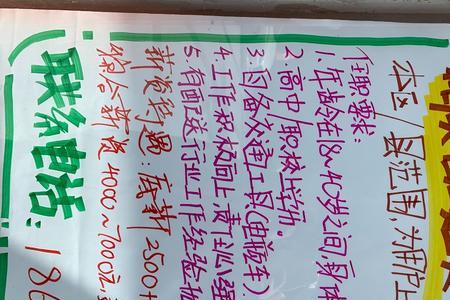 本区/县范围,为用户上
任职要求:
1. 年龄在18~40岁之间,身体
2. 高中/职校学历.
3. 自备交通工具(电瓶车).
4. 工作积极向上,责任心强
5. 有面送行业工作经验
薪资待遇:底薪2500+
综合薪资4000~7000元
联络电话:18